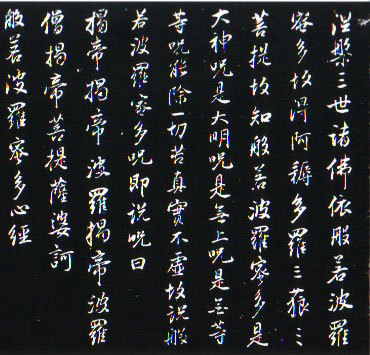 涅槃三世諸佛依般若波羅
蜜多故得阿耨多羅三藐三
菩提故知般若波羅蜜多是
大神咒是大明咒是無上咒是無等
等咒能除一切苦真實不虛故說般
若波羅蜜多咒即說咒曰
揭帝揭帝波羅揭帝波羅
僧揭帝菩提薩婆訶
般若波羅蜜多心經